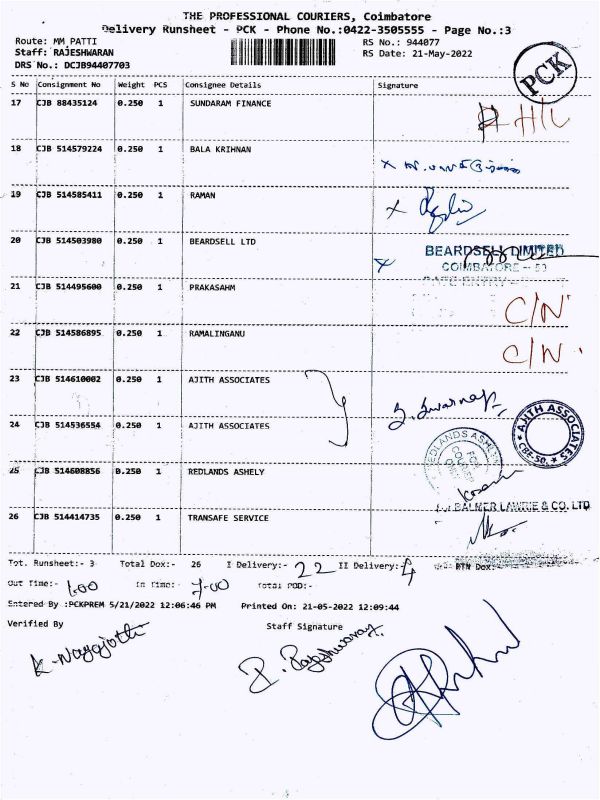 THE PROFESSIONAL COURIERS, Coimbatore
Delivery Runsheet - PCK - Phone No.:0422-3505555 - Page No.:3
Route: MM PATTI
RS No.: 944077
Staff: RAJESHWARAN
RS Date: 21-May-2022
DRS No.: DCJB94407703
PCK
S No Consignment No Weight PCS Consignee Details Signature
17 CJB 88435124 0.250 1 SUNDARAM FINANCE
18 CJB 514579224 0.250 1 BALA KRIHNAN
19 CJB 514585411 0.250 1 RAMAN
20 CJB 514503980 0.250 1 BEARDSELL LTD
BEARDSELL LIMITED
COIMBATORE - 50
21 CJB 514495600 0.250 1 PRAKASAHM C/N
22 CJB 514586895 0.250 1 RAMALINGANU C/N
23 CJB 514610002 0.250 1 AJITH ASSOCIATES
24 CJB 514536554 0.250 1 AJITH ASSOCIATES
AJITH ASSOCIATES
CBE-50.
25 CJB 514608856 0.250 1 REDLANDS ASHELY
REDLANDS ASHELY
For BALMER LAWRIE & CO. LTD
26 CJB 514414735 0.250 1 TRANSAFE SERVICE
Tot. Runsheet:- 3 Total Dox:- 26 I Delivery:- 22 II Delivery:- 4 RTN Dox:-
Out Time:- 1.00 In Time:- 7-00 Total POD:-
Entered By :PCKPREM 5/21/2022 12:06:46 PM Printed On: 21-05-2022 12:09:44
Verified By Staff Signature